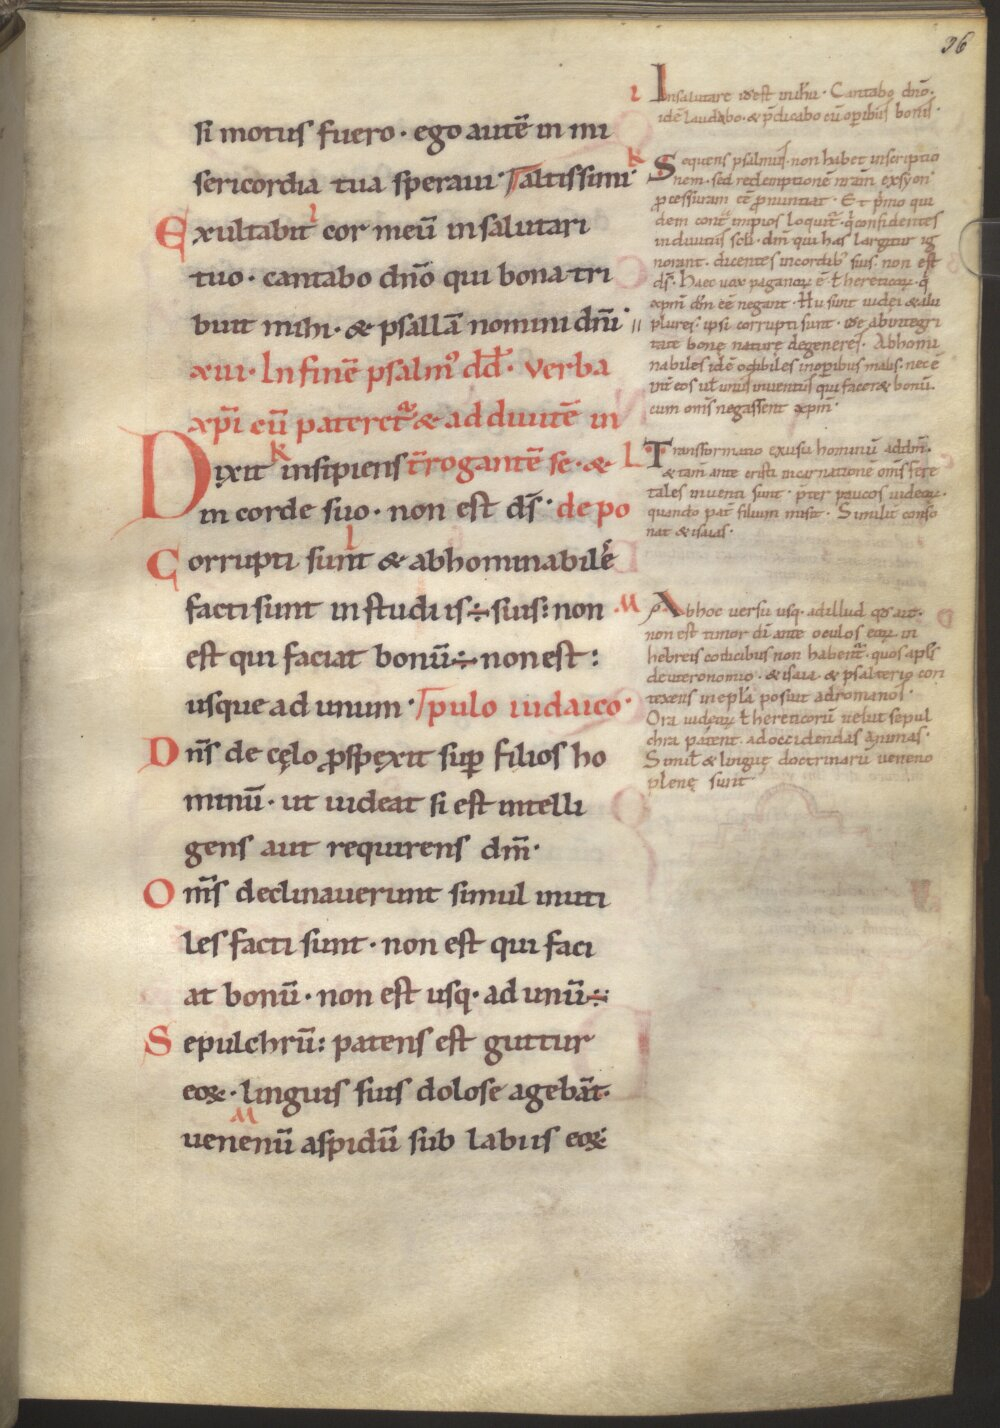 96
si motus fuero · ego autē in mi
sericordia tua speraui · altissimi ·
Exultabit cor meū in salutari
tuo · cantabo dn̄o qui bona tri
buit mihi · & psallā nomini dn̄i ·
xiii · In finē psalm᾿ dd̄ · verba
xp̄i cū pateret᷑ & ad diuitē in
Dixit insipiens t̄rogantē se · &
in corde suo · non est ds̄ · de po
Corrupti sunt & abhominabiles̄
facti sunt in studiis ÷ suis : non
est qui faciat bonū ÷ non est :
usque ad unum · pulo iudaico ·
Dn̄s de cęlo ꝓspęxit sup̄ filios ho
minū · ut uideat si est intelli
gens aut requirens dm̄ ·
Om̄s declinauerunt simul inuti
les facti sunt · non est qui faci
at bonū · non est usq · ad unū ÷
Sepulchrū : patens est guttur
eoꝝ · linguis suis dolose agebāt ·
uenenū aspidū sub labiis eoꝝ
i In salutare id est in ih̄u · Cantabo dn̄o ·
idē laudabo · & p̄dicabo cū oꝑibus bonis ·
k Sequens psalmus · non habet inscriptio
nem · sed redemptionē nr̄am ex syon
ꝓcessuram eē ꝓnuntiat · Et p̄mo qui
dem cont᷑ impios loquit᷑ · q̄ confidentes
in diuitiis scl̄i · dm̄ qui has largitur ig
norant · dicentes in cordib᾿ suis · non est
ds̄ · Haec uox paganoꝝ ē · ł hereticoꝝ · q̄
xp̄m dm̄ eē negant · Hii sunt iudei & alii
plures · ipsi corrupti sunt · id ē ab integri
tate bonę naturę degeneres · Abhomi
nabiles idē odibiles in oꝑibus malis · nec ē
int̄ eos uł unus inuentus qui facer& bonū ·
cum om̄s negassent xp̄m ·
L Transformatio ex usu hominū ad dm̄ ·
& tam̄ ante cristi incarnationē om̄s fere
tales inuenti sunt · p̄ter paucos iudeoꝝ ·
quando pat̄ filium misit · Similit̄ conso
nat & isaias ·
M Ab hoc uersu usq · ad illud qd̄ ait ·
non est timor dī ante oculos eoꝝ · in
hebreis codicibus non habent᷑ · quos apl̄s
deuteronomio · & isaia · & psalterio con
texens in epl̄a posuit ad romanos ·
Ora iudeoꝝ ł hereticorū uelut sepul
chra patent · ad occidendas animas ·
Simil̄ & linguę doctrinarū ueneno
plenę sunt